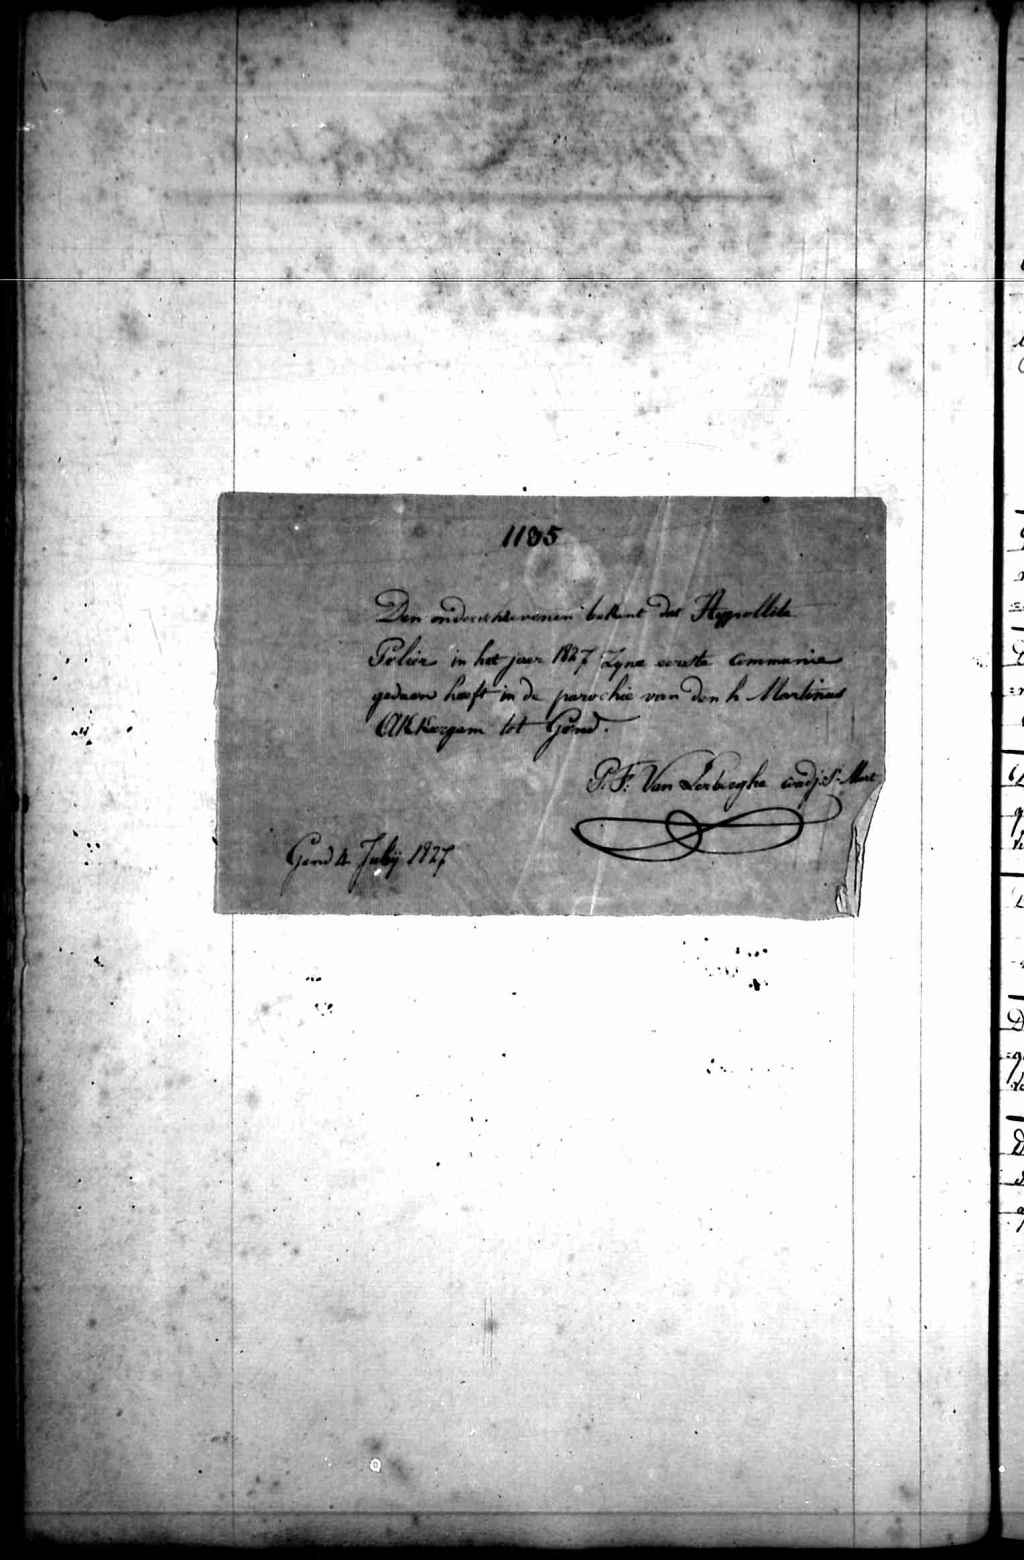 1185
Den onderschrevenen bekent dat Hyppolite
Polier in het jaer 1827 Zyne eerste Communie
gedaen heeft in de parochie van den h. Martinus
Akkergem tot Gend.
P. F. Van Lerberghe coadj. St. Mart
Gend 4 July 1827